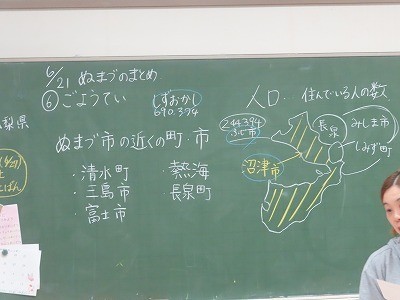 6/21 ぬまづのまとめ
⑥ ごようてい
しずおかし
690.394
ぬまづ市の近くの町・市
・清水町
・三島市
・富士市
・熱海
・長泉町
人口・住んでいる人の数
244.394
ふじ市
沼津市
長泉
みしま市
しみず町
梨県